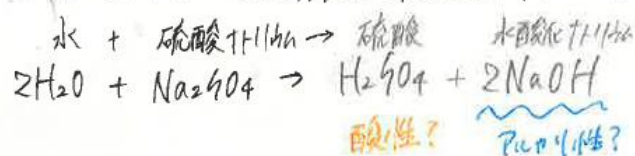 水 + 硫酸ナトリウム → 硫酸 水酸化ナトリウム
2H₂O + Na₂SO₄ → H₂SO₄ + 2NaOH
酸性? アルカリ性?